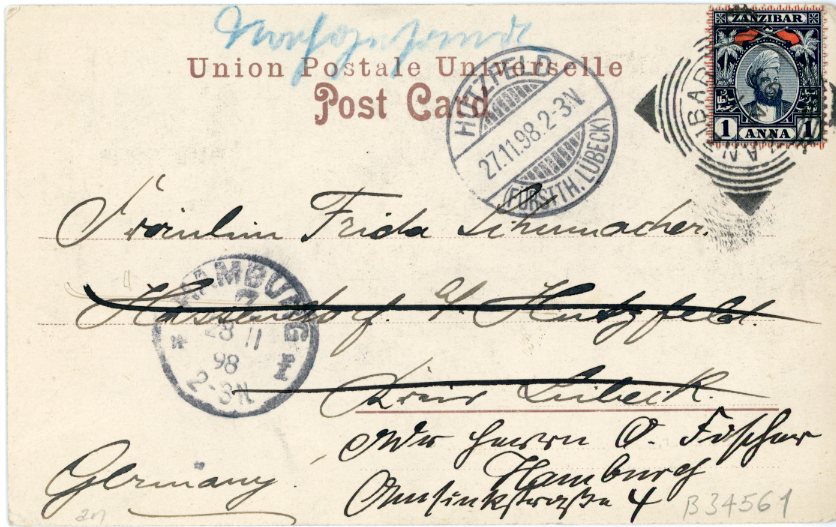 Nachgesandt
Union Postale Universelle
Post Card
ZANZIBAR
1 ANNA 1
ZANZIBAR
HUTZFELD
27.11.98.2-3N
(FÜRSTTH. LÜBECK)
Fräulein Frida Schumacher.
HAMBURG
7
28 11
98
2-3N
* 1
Hassendorf b/ Hutzfeld.
Kreis Lübeck.
Adr Herrn O. Fischer
Hamburg
Germany.
Amsinkstraße 4
B34561